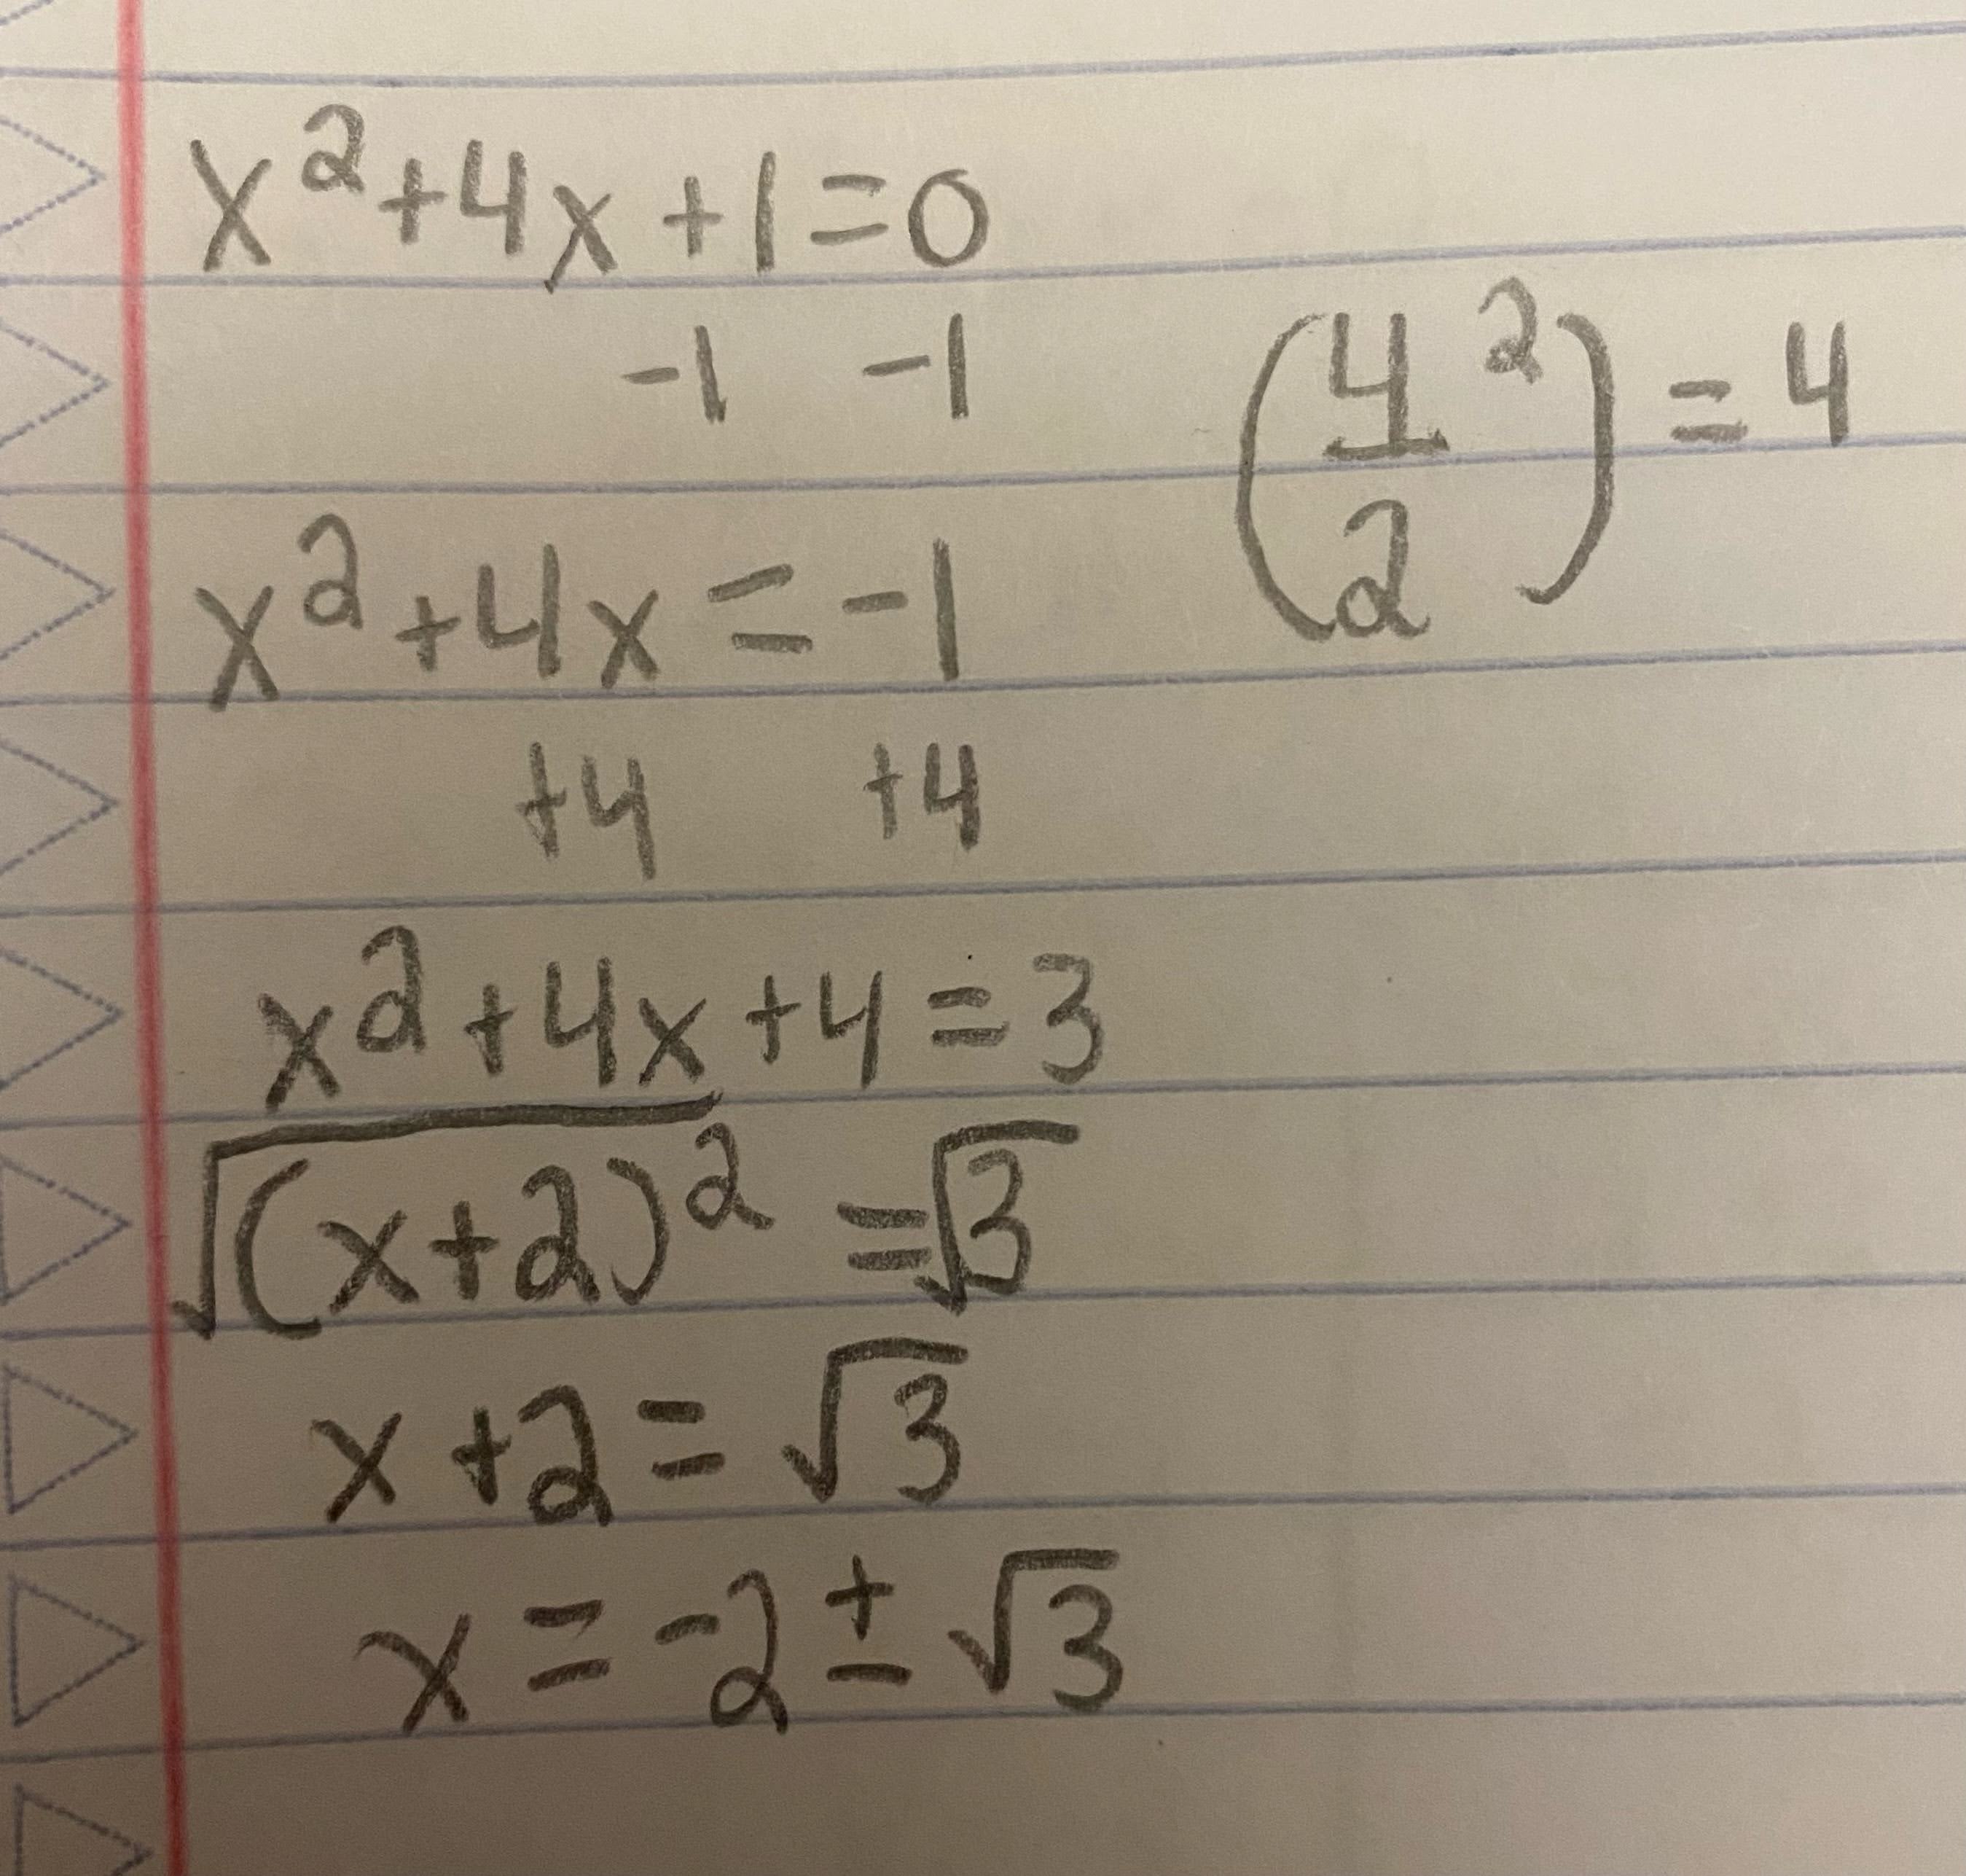 x²+4x+1=0
-1 -1
(4²/2)=4
x²+4x=-1
+4 +4
x²+4x+4=3
√(x+2)²=√3
x+2=√3
x=-2±√3